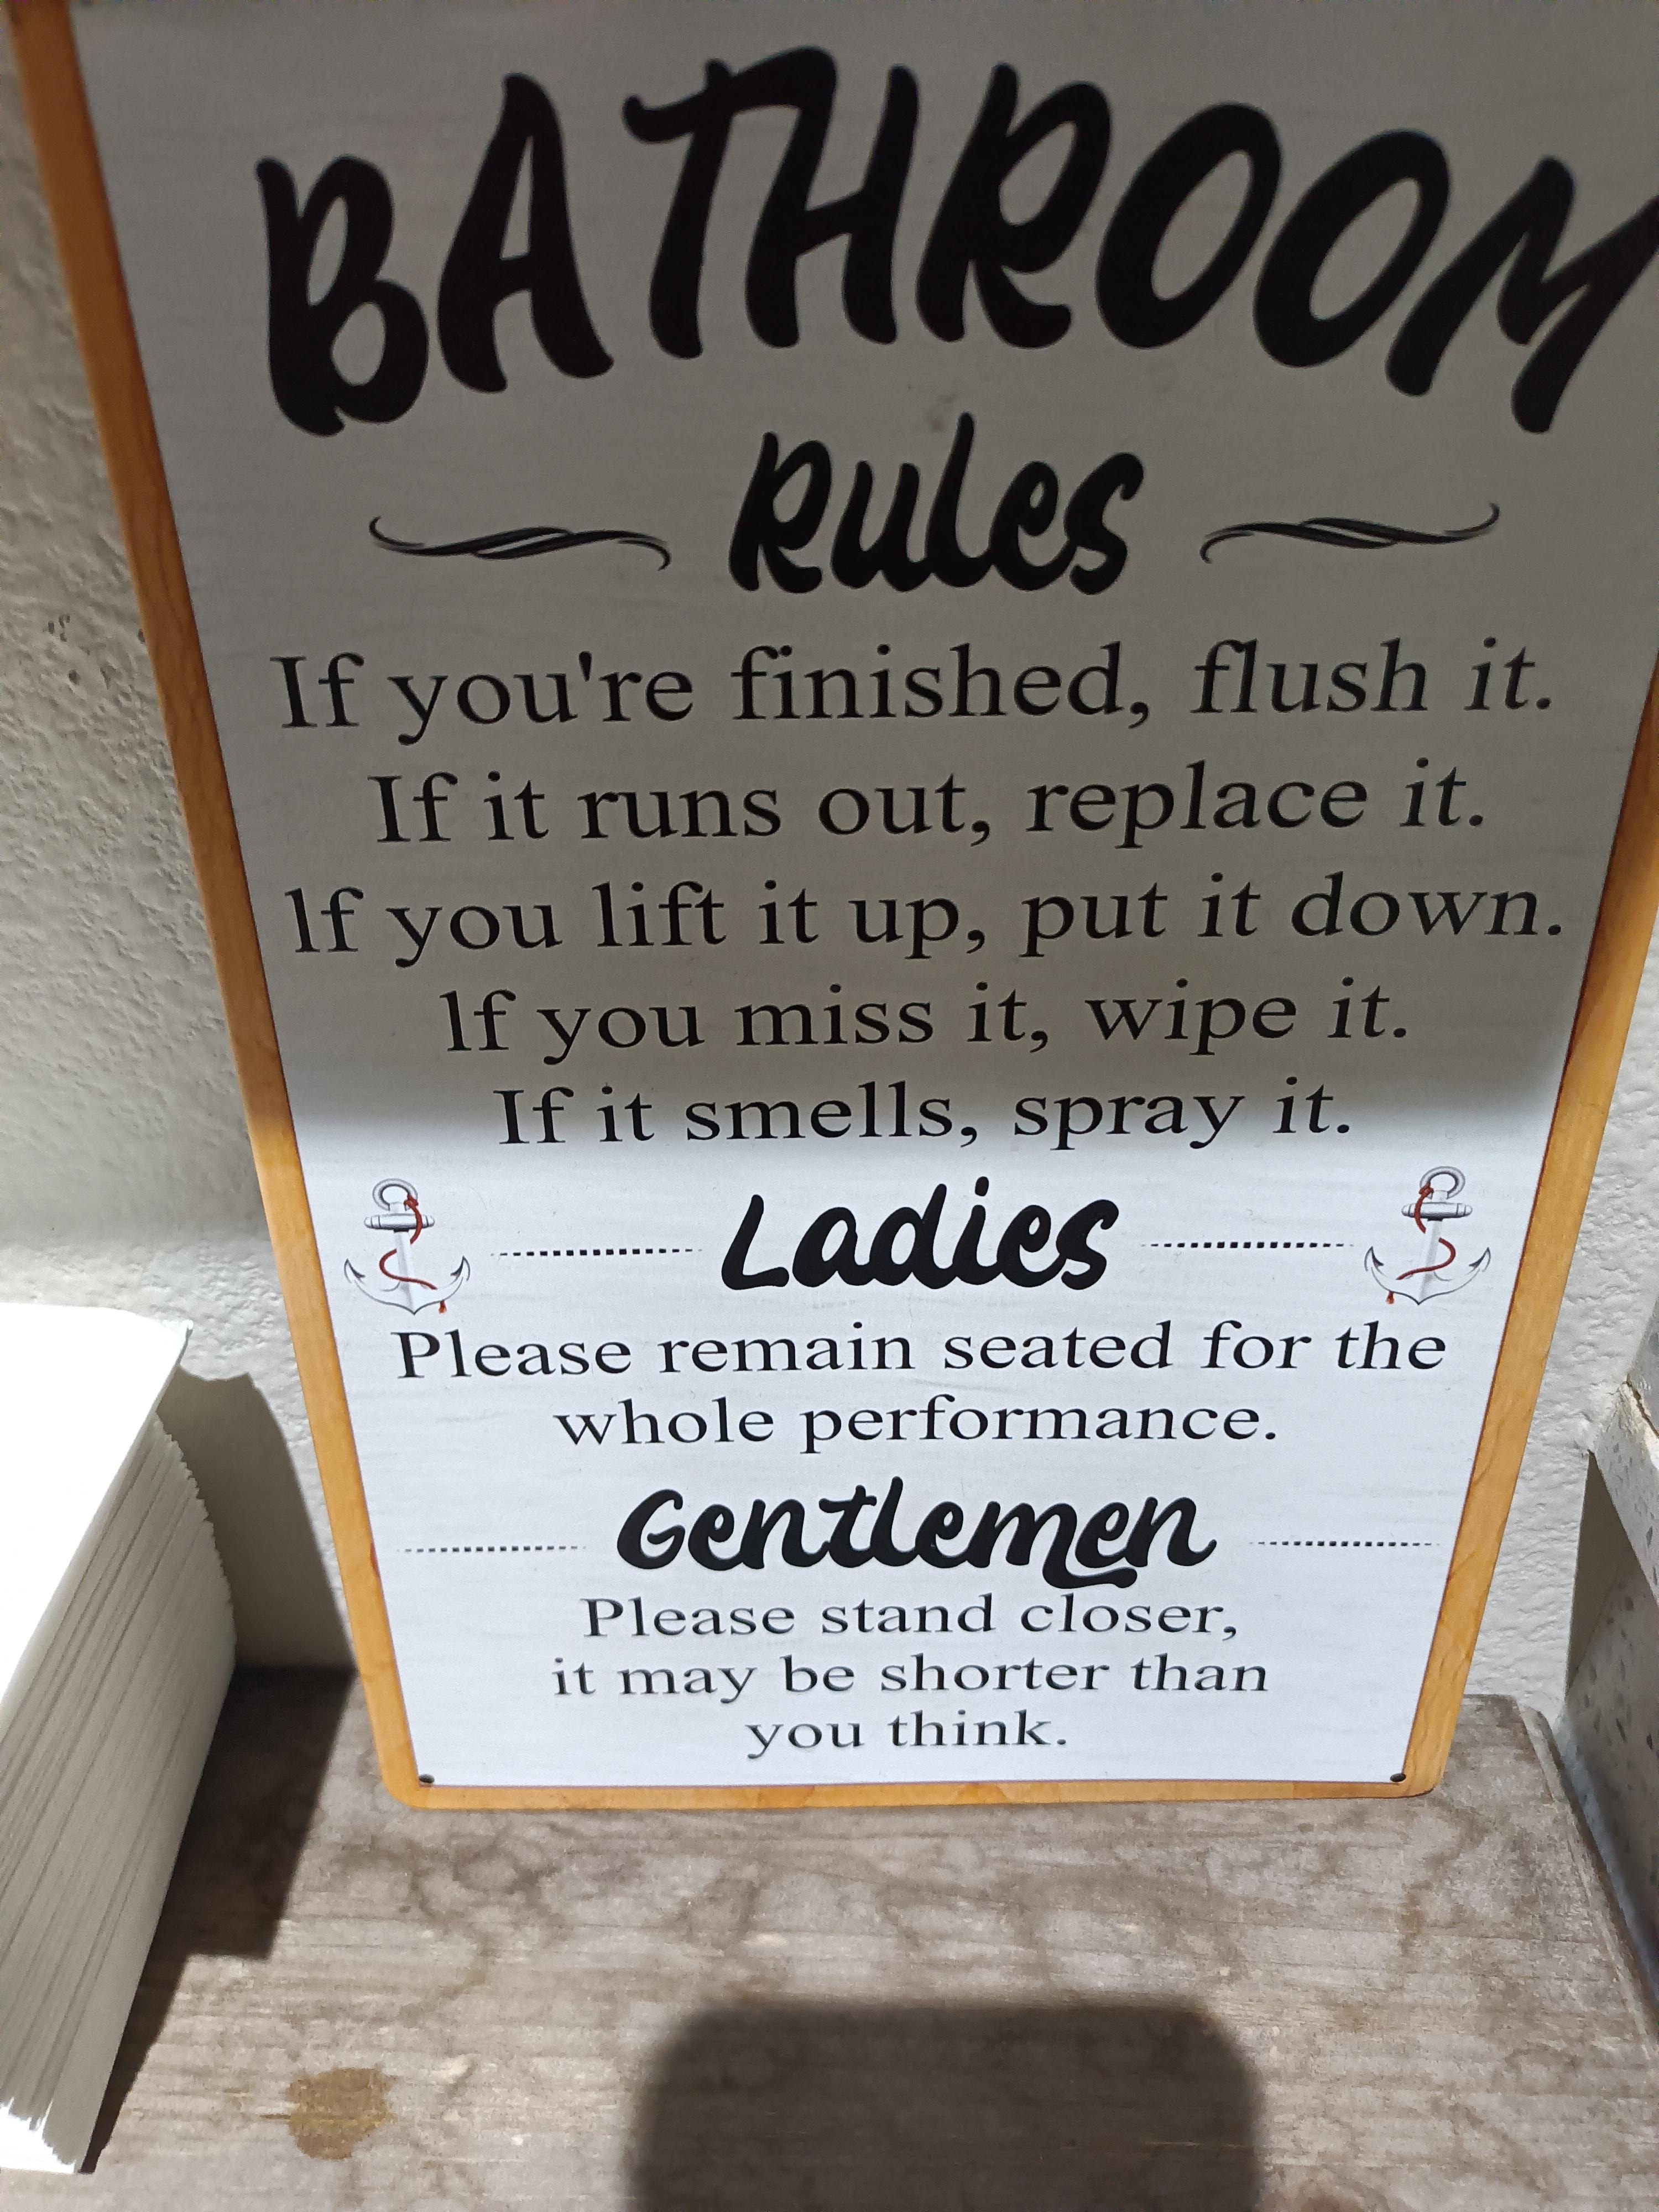 BATHROOM
Rules
If you're finished, flush it.
If it runs out, replace it.
If you lift it up, put it down.
If you miss it, wipe it.
If it smells, spray it.
Ladies
Please remain seated for the
whole performance.
Gentlemen
Please stand closer,
it may be shorter than
you think.